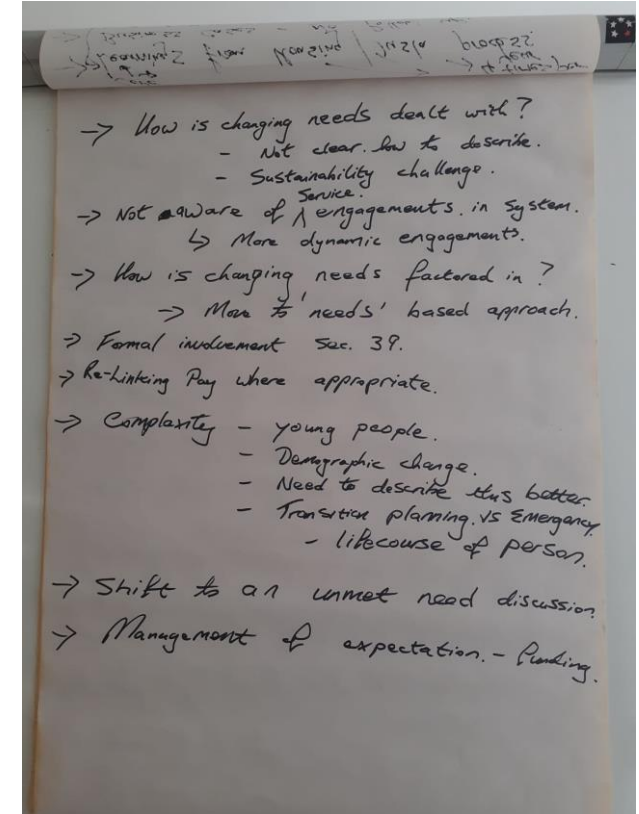 -> How is changing needs dealt with?
- Not clear. how to describe.
- Sustainability challenge.
Service.
-> Not aware of ʌ engagements. in System.
↳ More dynamic engagements.
-> How is changing needs factored in?
-> Move to 'needs' based approach.
-> Formal involvement Sec. 39.
-> Re-Linking Pay where appropriate.
-> Complexity - young people.
- Demographic change.
- Need to describe this better.
- Transition planning. vs Emergency.
- lifecourse of person.
-> Shift to an unmet need discussion.
-> Management of expectation. - funding.